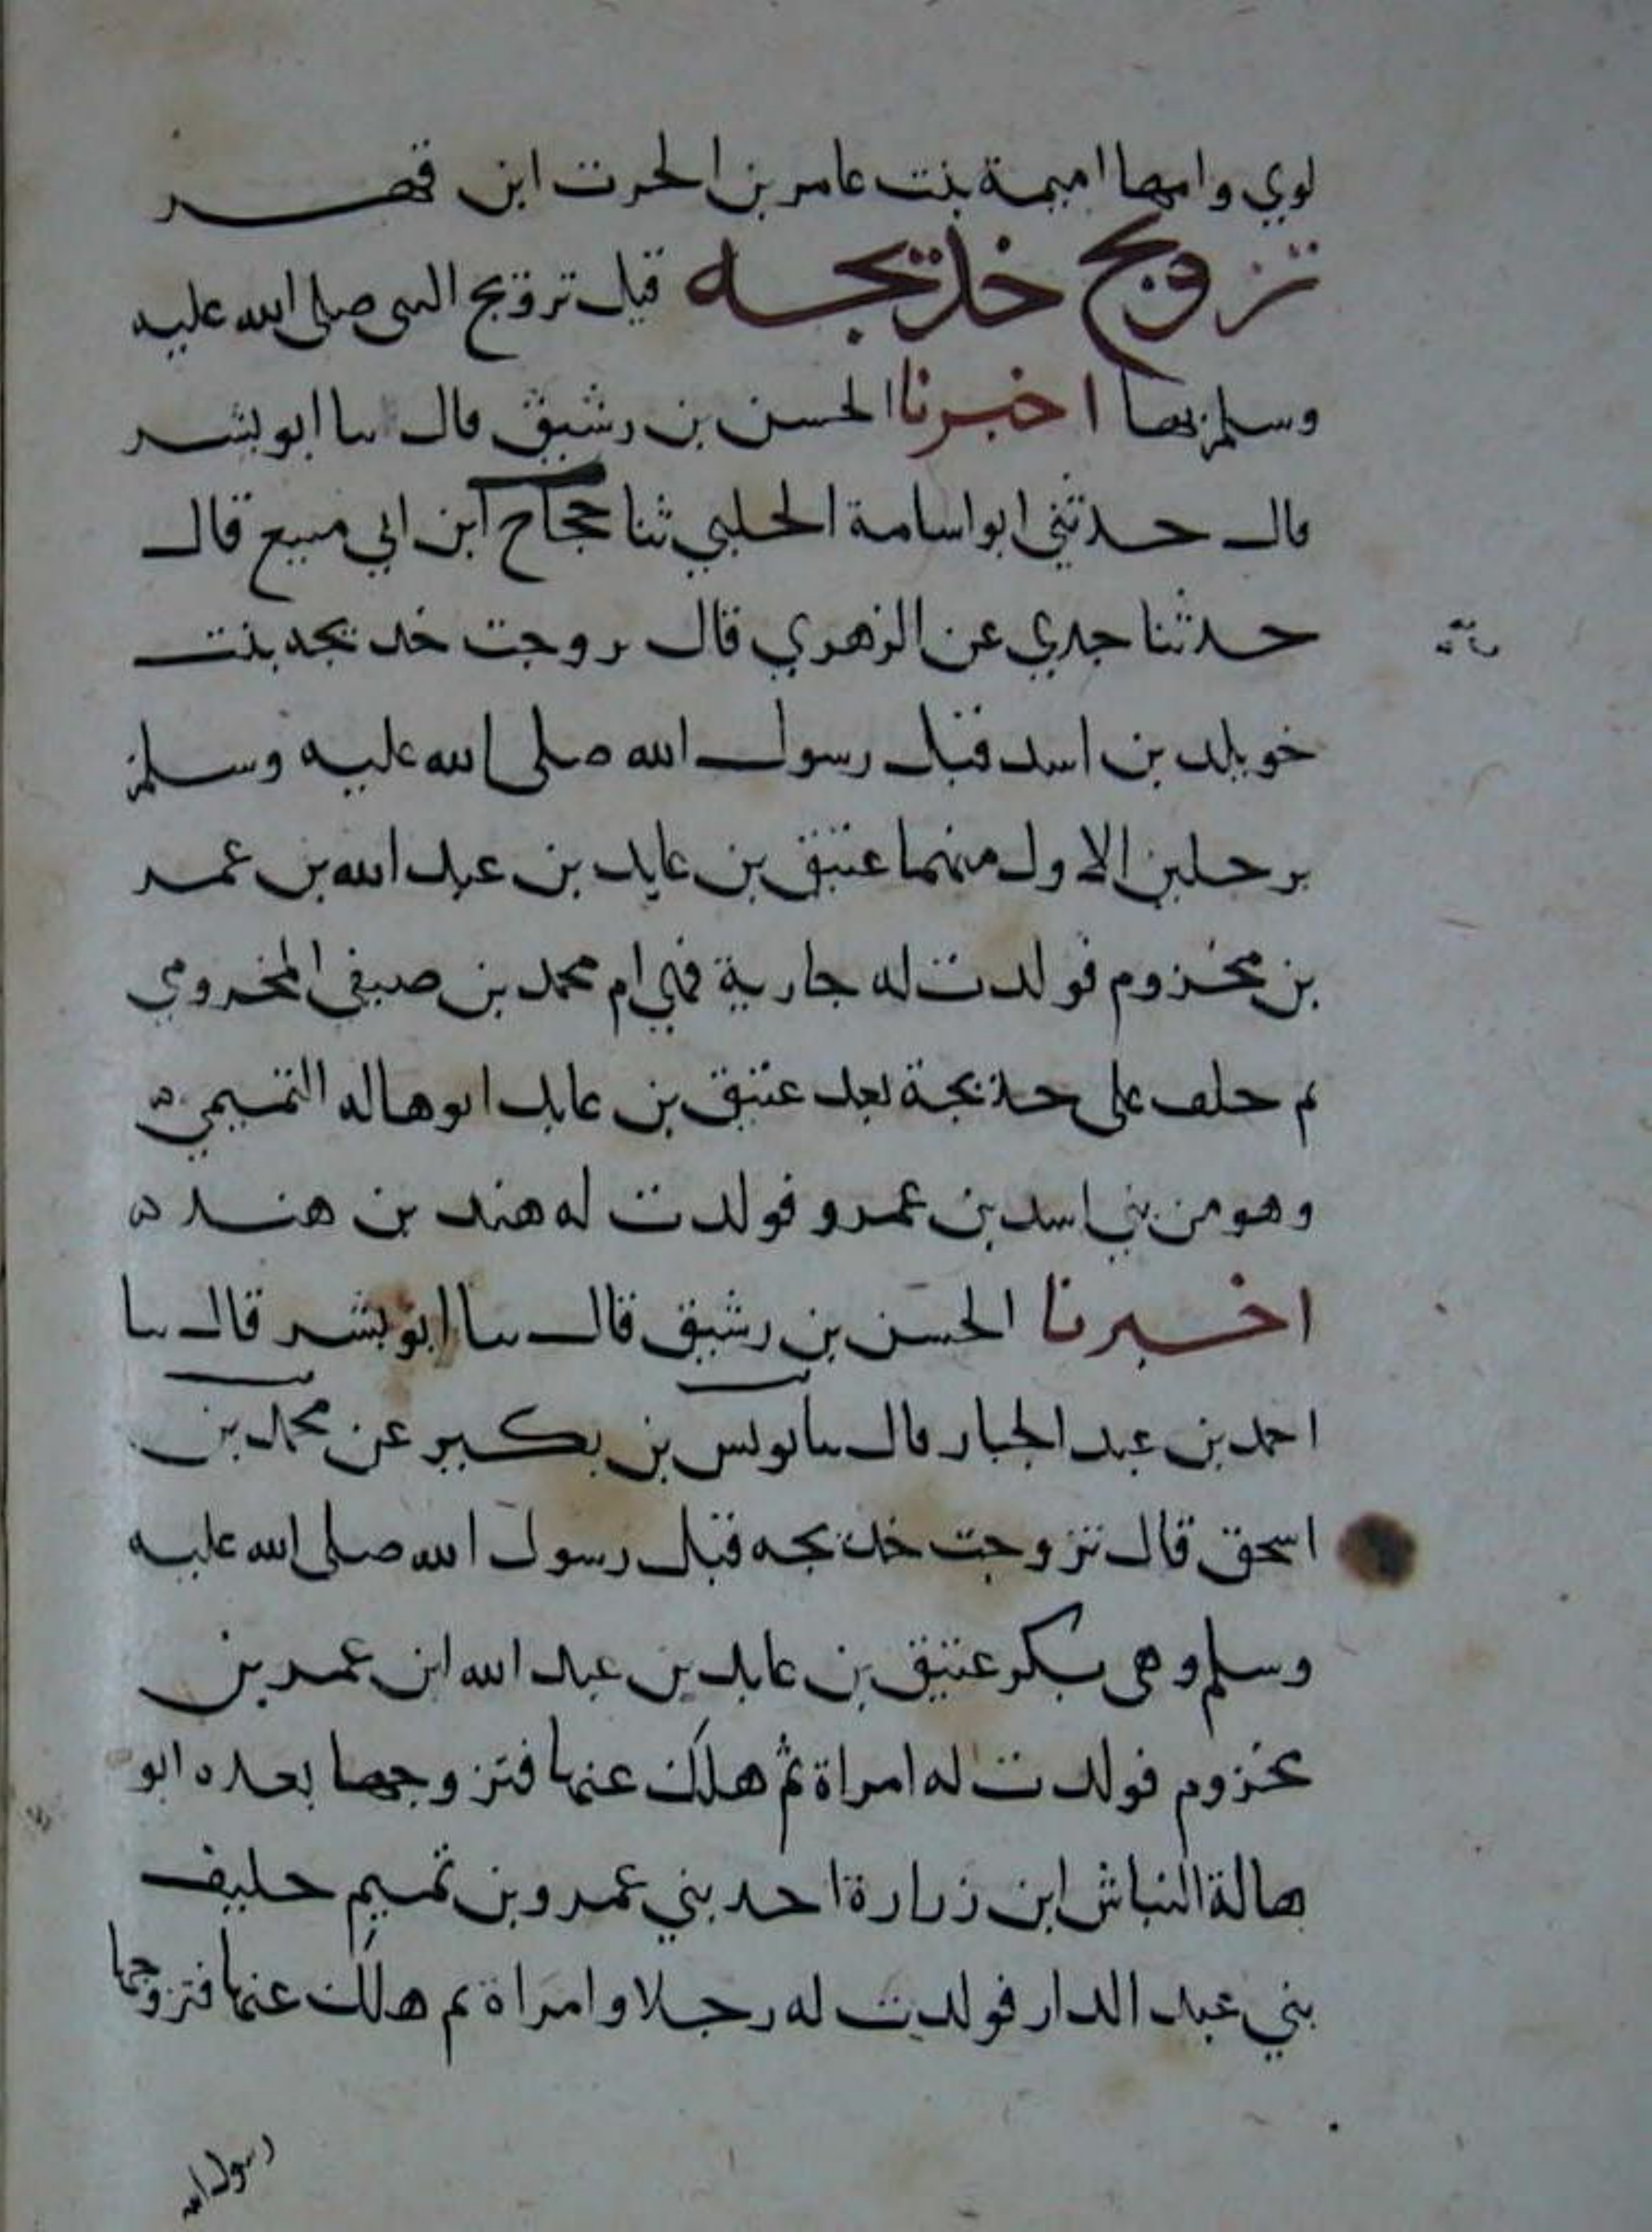 لوي وامها اميمة بنت عامر بن الحرت ابن فهر
تزويج خديجه قبل تزويج النبي صلى الله عليه
وسلم بها اخبرنا الحسن بن رشيق قال سا ابو بشر
قال حدثني ابو اسامة الحلبي ثنا حجاج ابن ابي منيع قال
حدثنا جدي عن الزهري قال تزوجت خديجه بنت
خويلد بن اسد قبل رسول الله صلى الله عليه وسلم
برجلين الاول منهما عتيق بن عايد بن عبد الله بن عمر
بن مخزوم فولدت له جارية فهي ام محمد بن صيفي المخزومي
ثم خلف على خديجة بعد عتيق بن عايد ابو هاله التميمي ه
وهو من بني اسد بن عمرو فولدت له هند بن هند ه
اخبرنا الحسن بن رشيق قال سا ابو بشر قال سا
احمد بن عبد الجبار قال سا يونس بن بكير عن محمد بن
اسحق قال تزوجت خديجه قبل رسول الله صلى الله عليه
وسلم وهي بكر عتيق بن عايد بن عبد الله ابن عمر بن
مخزوم فولدت له امراة ثم هلك عنها فتزوجها بعده ابو
هالة النباش ابن زرارة احد بني عمرو بن تميم حليف
بني عبد الدار فولدت له رجلا وامراة ثم هلك عنها فتزوجها
رسول الله